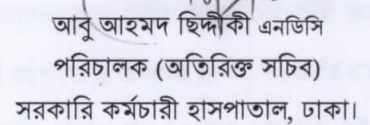 আবু আহমদ ছিদ্দীকী এনডিসি
পরিচালক (অতিরিক্ত সচিব)
সরকারি কর্মচারী হাসপাতাল, ঢাকা।